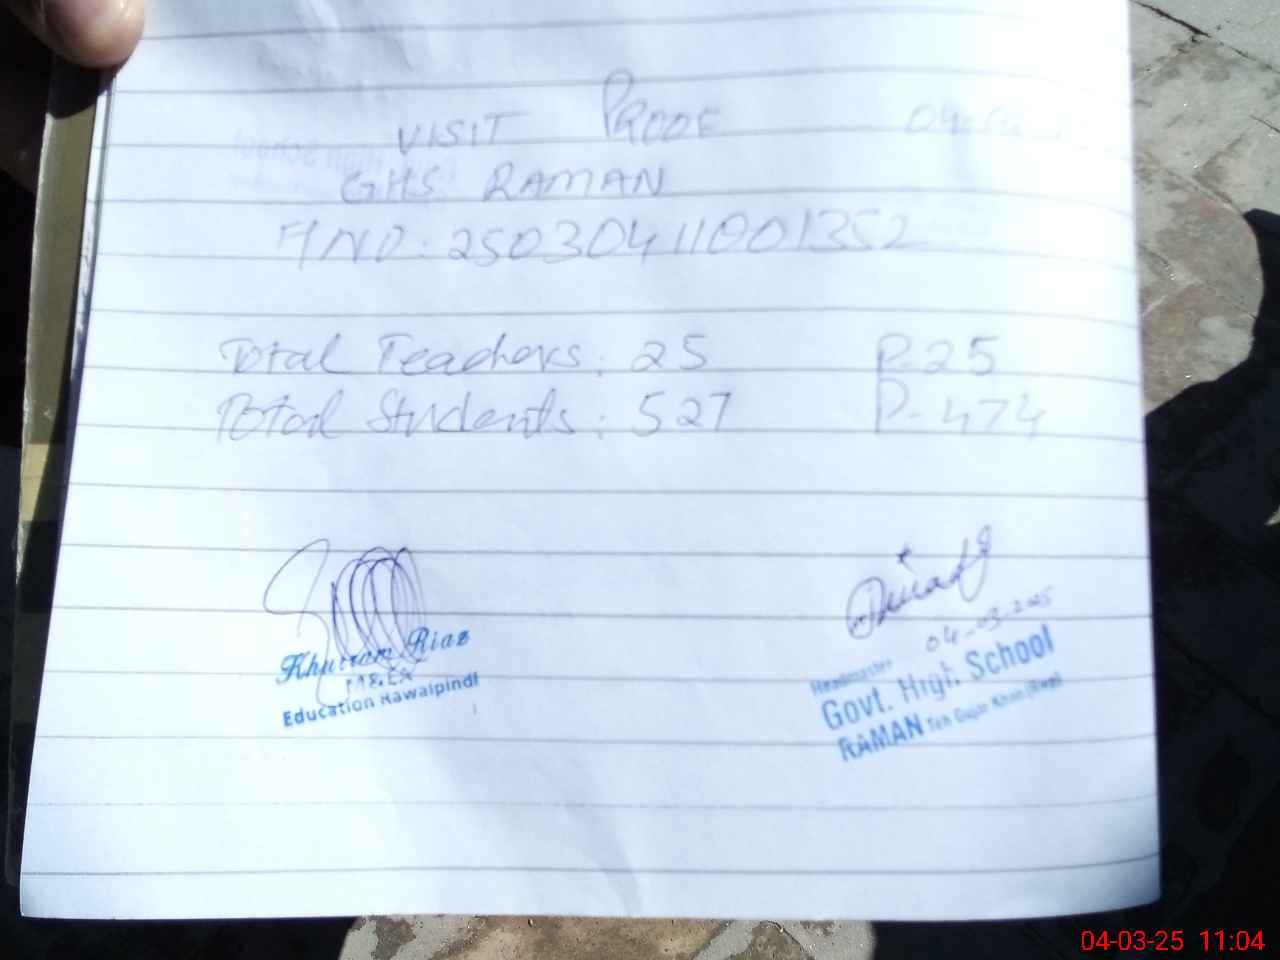 VISIT PROOF
GHS RAMAN
A/NO: 25030411001352
Total Teachers: 25 P-25
Total Students: 527 P-474
Khurram Riaz
M&EA
Education Rawalpindi
04-03-2025
Headmaster
Govt. High School
RAMAN Teh Gujar Khan (Rwp)
04-03-25 11:04